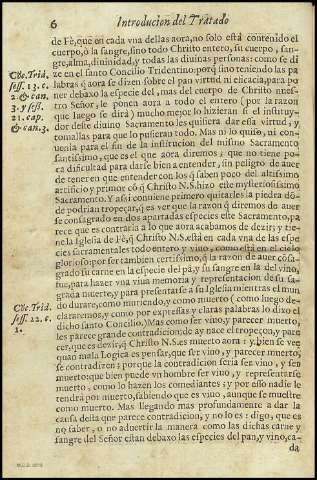 6 Introducion del Tratado
de Fè, que en cada vna dellas aora, no solo està contenido el
cuerpo, ò la sangre, sino todo Christo entero, su cuerpo, san-
gre, alma, diuinidad, y todas las diuinas personas: como se di
ze en el santo Concilio Tridentino: porq̃ sino teniendo las pa
labras q̃ aora se dizen sobre el pan virtud ni eficacia, para po
ner debaxo la especie del, mas del cuerpo de Christo nues-
tro Señor, le ponen aora à todo el entero (por la razon
que luego se dirà) mucho mejor lo hizieran si el institu-
dor deste diuino Sacramento les quisiera dar esta virtud, y
tomallas para que lo pusieran todo. Mas ni lo quiso, ni con-
uenia para el fin de la institucion del mismo Sacramento
santissimo, que es el que aora diremos; y que no tiene po-
ca dificultad para darse bien a entender, sin peligro de auer
de tener en que entender con los q̃ saben poco del altissimo
artificio y primor cõ q̃ Christo N.S. hizo este mysteriosissimo
Sacramento. Y assi conuiene primero quitarles la piedra dõ-
de podrian tropeçar, q̃ es ver que la razon q̃ diremos de auer
se consagrado en dos apartadas especies este Sacramento, pa
rece que es contraria a lo que aora acabamos de dezir; y tie-
ne la Iglesia de Fè, q̃ Christo N.S. està en cada vna de las espe
cies sacramentales todo entero y viuo, como està en el cielo
glorioso: por ser tambien certissimo, q̃ la razon de auer cõsa-
grado su carne en la especie del pã, y su sangre en la del vino,
fue, para hazer vna viua memoria y representacion de su sa-
grada muerte, y para presentarse a su Iglesia mientras el mun
do durare, como muriendo, y como muerto (como luego de-
clararemos, y como por expressas y claras palabras lo dixo el
dicho santo Concilio.) Mas como ser viuo, y parecer muerto,
les parece grande contradicion: de ay nace el tropeçon, y pare
cer, que es dezir, q̃ Christo N.S. es muerto aora: y bien se vee
quan mala Logica es pensar, que ser viuo, y parecer muerto,
se contradizen: porque la contradicion seria ser viuo, y ser
muerto: que bien puede vn hombre ser viuo, y representarse
muerto, como lo hazen los comediantes: y por esso nadie le
tendrà por muerto, sabiendo que es viuo, aunque se muestre
como muerto. Mas llegando mas profundamente a dar la
causa desta que parece contradicion, y no lo es: digo, que es
no saber, o no aduertir la manera como las dichas carne y
sangre del Señor están debaxo las especies del pan, y vino, ca-
da
Cõc. Trid.
sess. 13. c.
2. & can.
3. y sess.
21. cap.
& can. 3.
Cõc. Trid.
sess. 22. c.
1.